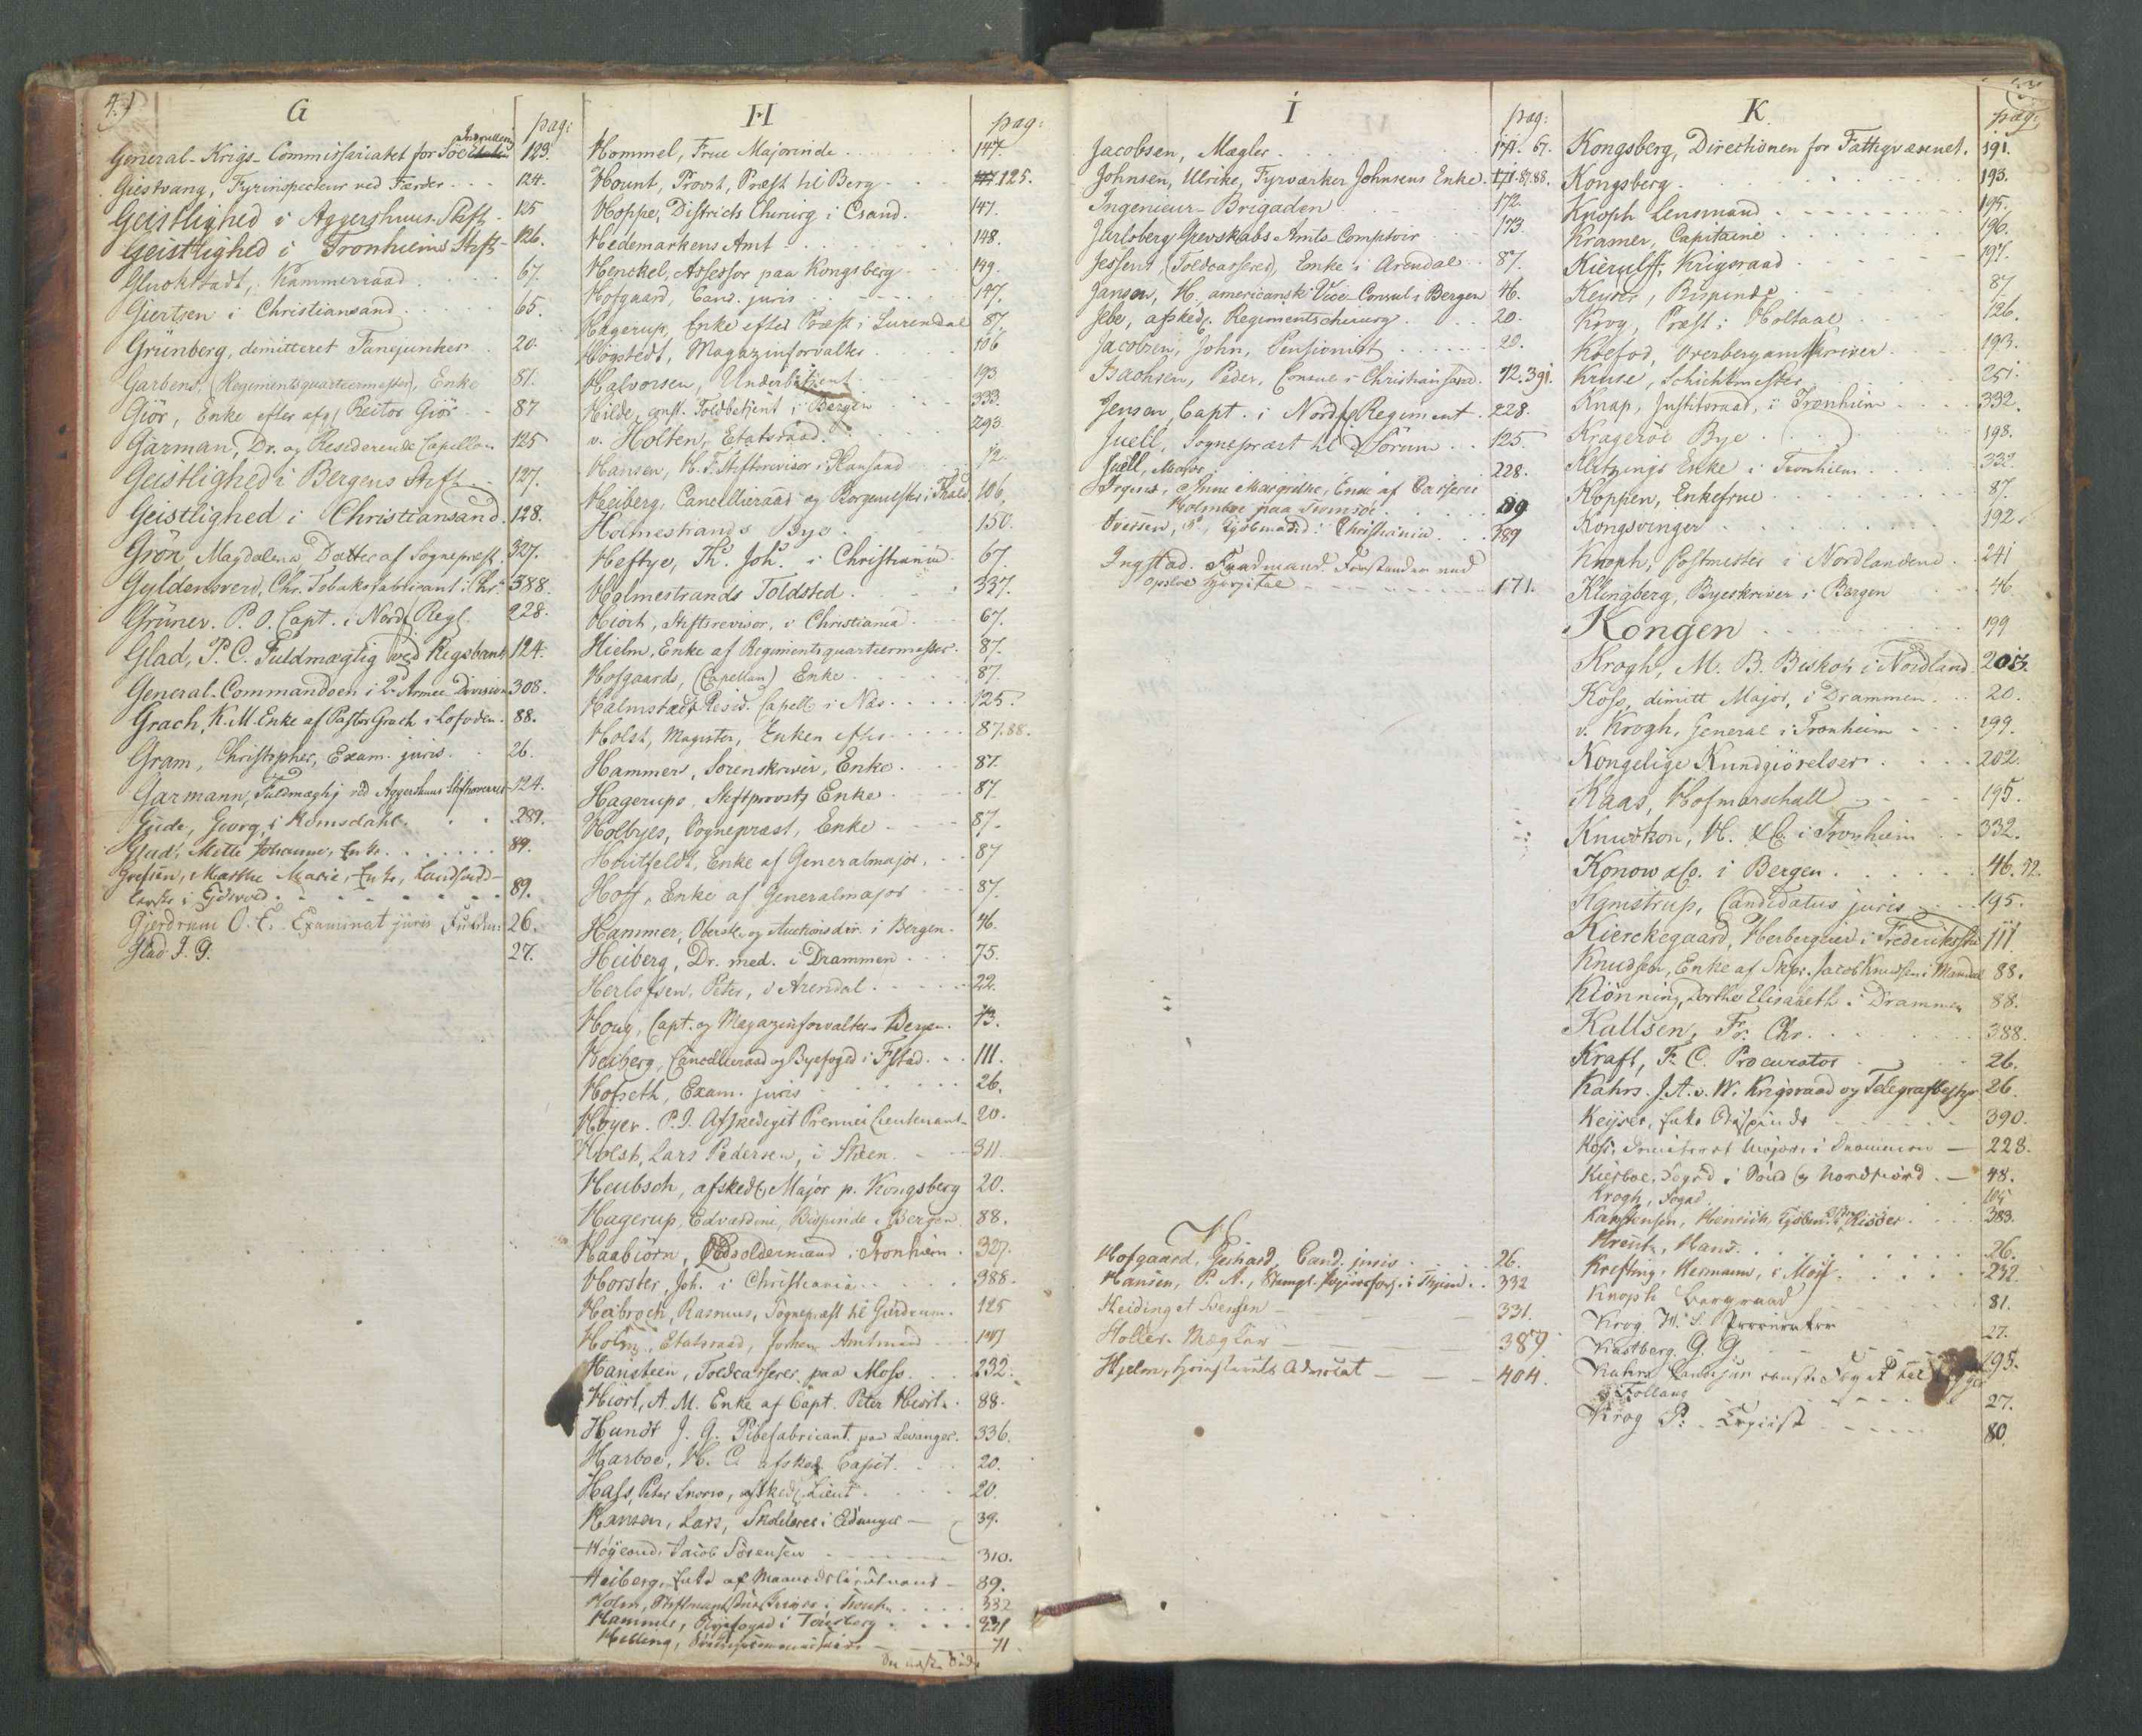 4.)
G
pag:
General-Krigs-Commissariatet for Söe 123.
Giestvang, Fyrinspecteur ved Færder 124.
Geistlighed i Aggershuus Stift 125
Geistlighed i Tronhiems Stift 126.
Gluckstadt, Kammerraad 67.
Giertsen i Christiansand 65.
Grünberg, dimitteret Fanejunker 20.
Garbens, (Regimentsquarteermester), Enke 87.
Giör, Enke efter afg. Rector Giör 87
Garman, Dr. og Residerende Capellan 125
Geistlighed i Bergens Stift 127.
Geistlighed i Christiansand. 128.
Grön, Magdalena, Datter af Sognepræst. 327.
Gyldensverd, Chr. Tobaksfabricant i Chr. 388.
Grüner. P. O. Capt. i Nordf. Reg. 228.
Glad, P. C. Fuldmægtig ved Rigsbank 124.
General-Commandoen i 2. Armee Division 308.
Grach, K. M. Enke af Pastor Grach i Lofoden. 88.
Gram, Christopher, Exam. juris 26.
Garmann, Fuldmægtig ved Aggershuus 124.
Gude, Georg, i Romsdahl. 289.
Glad, Mette Johanne, Enke 89.
Marthe Marie, Enke,
i Eidsvold 89.
Gjerdrum O. E. Examinat juris 26.
Glad J. G. 27.
H
pag:
Hommel, Frue Majorinde 147.
Hount, Provst, Præst til Berg 125.
Hoppe, Districts Chirurg i Csand. 147.
Hedemarkens Amt 148.
Henckel, Assessor paa Kongsberg 149.
Hofgaard, Cand. juris 147.
Hagerup, Enke efter Præst i Surendal 87.
Högstedt, Magazinforvalter 106
Halvorsen, Underbetient 193
Hilde, const. Toldbetient i Bergen 333.
v. Holten, Etatsraad. 293
Hansen, H. F. Stiftsrevisor i Xansand 72.
Heiberg, Cancellieraad og Borgemester i Fhald 106.
Holmestrands Bye 150.
Heftye, Th. Joh. i Christiania 67.
Holmestrands Toldsted 337.
Hiort, Stiftsrevisor, i Christiania 67.
Hielm, Enke af Regimentsquarteermester. 87.
Hofgaards, (Capellan) Enke 87.
Halmstad, Resid. Capell. i Næs 125.
Holst, Magister, Enken efter 87.88.
Hammers, Sorenskriver, Enke 87.
Hagerups, Stiftprovsts Enke 87.
Holbyes, Sognepræst, Enke 87.
Huitfeldt, Enke af Generalmajor. 87
Hoff, Enke af Generalmajor 87.
Hammer, Oberstl. og Auctionsdir. i Bergen. 46.
Heiberg, Dr. med. i Drammen 75.
Herlofsen, Peter, i Arendal 22.
Houg, Capt. og Magazinforvalter i Bergen. 43.
Heiberg, Cancellieraad og Byefoged i Fstad. 111.
Hofseth, Exam. juris 26.
Höyer. P. J. Afskediget Premier Lieutenant 20.
Holst, Lars Pedersen, i Skeen. 311.
Heubsch, afsked. Major p. Kongsberg 20.
Hagerup, Edvardine, Bispinde i Bergen 88.
Haabiörn, i Tronhiem. 327.
Horster, Joh. i Christiania 388.
Heibroch, Rasmus, Sognepræst til Gierdrum. 125
Holm, Etatsraad, forhen Amtmand 147
Hansteen, Toldcasserer paa Moss. 232.
Hiort, A. M. Enke af Capt. Peter Hiort. 88.
Hundt J. G. Pibefabricant paa Levanger. 336.
Harboe, H. C. afsked. Capit. 20.
Hass, Peter Snorre, afsked. Lieut 20.
Hansen, Lars, Skolelærer i Eidanger 39.
Jacob Sörensen 310.
Heiberg, Enke af 89.
Holm, 332
Hammer, Byefoged i Tönsberg 331
Helling, 71
I
pag:
Jacobsen, Mægler 171. 67.
Johnsen, Ulrike, Fyrværker Johnsens Enke. 171. 87.88.
Ingenieur-Brigaden 172.
Jarlsberg Grevskabs Amts-Comptoir 173.
Jessens, (Toldcasserer), Enke i Arendal 87.
Janson, H. americansk Vice-Consul i Bergen 46.
Jebe, afsked. Regimentschirurg. 20.
Jacobsen, John, Pensionist 20.
Isachsen, Peder, Consul i Christiansand. 72.391.
Jensen, Capt. i Nordf. Regiment. 228.
Juell, Sognepræst til Sörum 125
Juell, Major 228.
Irgens, Anne Margrethe, Enke af Casserer
Holmboe paa Tromsöe 89
Iversen, P., Kjöbmand i Christiania 389
Ingstad. Fuldmand. Forstander ved
Opsloe Hospital 171.
H
Hofgaard, Gerhard, Cand. juris 26.
Hansen, P. A., i Thjem 332
Heiding et Svensen 331.
Holler. Mægler 387.
Hjelm, Höiesteretts Advocat 404.
K
pag:
Kongsberg, Directionen for Fattigvæsenet. 191.
Kongsberg 193.
Knoph Lensmand 195.
Kramer, Capitaine 196.
Kierulff, Krigsraad 197.
Keyser, Bispinde 87
Krog, Præst i Holtaal 126.
Koefod, Overbergamtskriver 193.
Kruse, Schichtmester 251.
Knap, Justitsraad, i Tronhiem 332.
Krageröe Bye 198.
Klüwings Enke i Tronhiem 332.
Koppen, Enkefrue 87.
Kongsvinger 192
Knoph, Postmester i Nordlandene 241
Klingberg, Byeskriver i Bergen 46.
Kongen 199
Krogh, M. B. Biskop i Nordland 203.
Koss, dimitt Major, i Drammen 20.
v. Krogh, General i Tronheim 199.
Kongelige Kundgiörelser. 202.
Kaas, Hofmarschall 195.
Knudtzon, H. & C. i Tronhiem 332.
Konow & Co. i Bergen 46.52.
Kamstrup, Candidatus juris 195.
Kierckegaard, Herbergeer i Frederiksstad 111.
Knudsen, Enke af Skpr. Jacob Knudsen i Mandal 88.
Kiönning, Dorthe Elisabeth i Drammen 88.
Kallsen, Fr. Chr. 388.
Kraft, F. C. Procurator 26.
Kahrs. J. A. v. W. Krigsraad og Telegrafbestyr 26
Keyser, Enke Bispinde 390.
Koss, Dimitteret Major i Drammen 228.
Kierboe, Foged i Sönd og Nordfiord. 48.
Krogh, Foged 105
Karstensen, Henrich, Kjöbm. i Öster Risöer. 383.
Kreutz, Hans. 26.
Krefting, Hermann, i Moss 232.
Knoph Bergraad 81.
Krog H. S. Procurator 27.
Kastberg. G. G. 195.
Kahrs Cand. jur. const. Foged
og Follaug 27.
Krog P. Copiist 80.